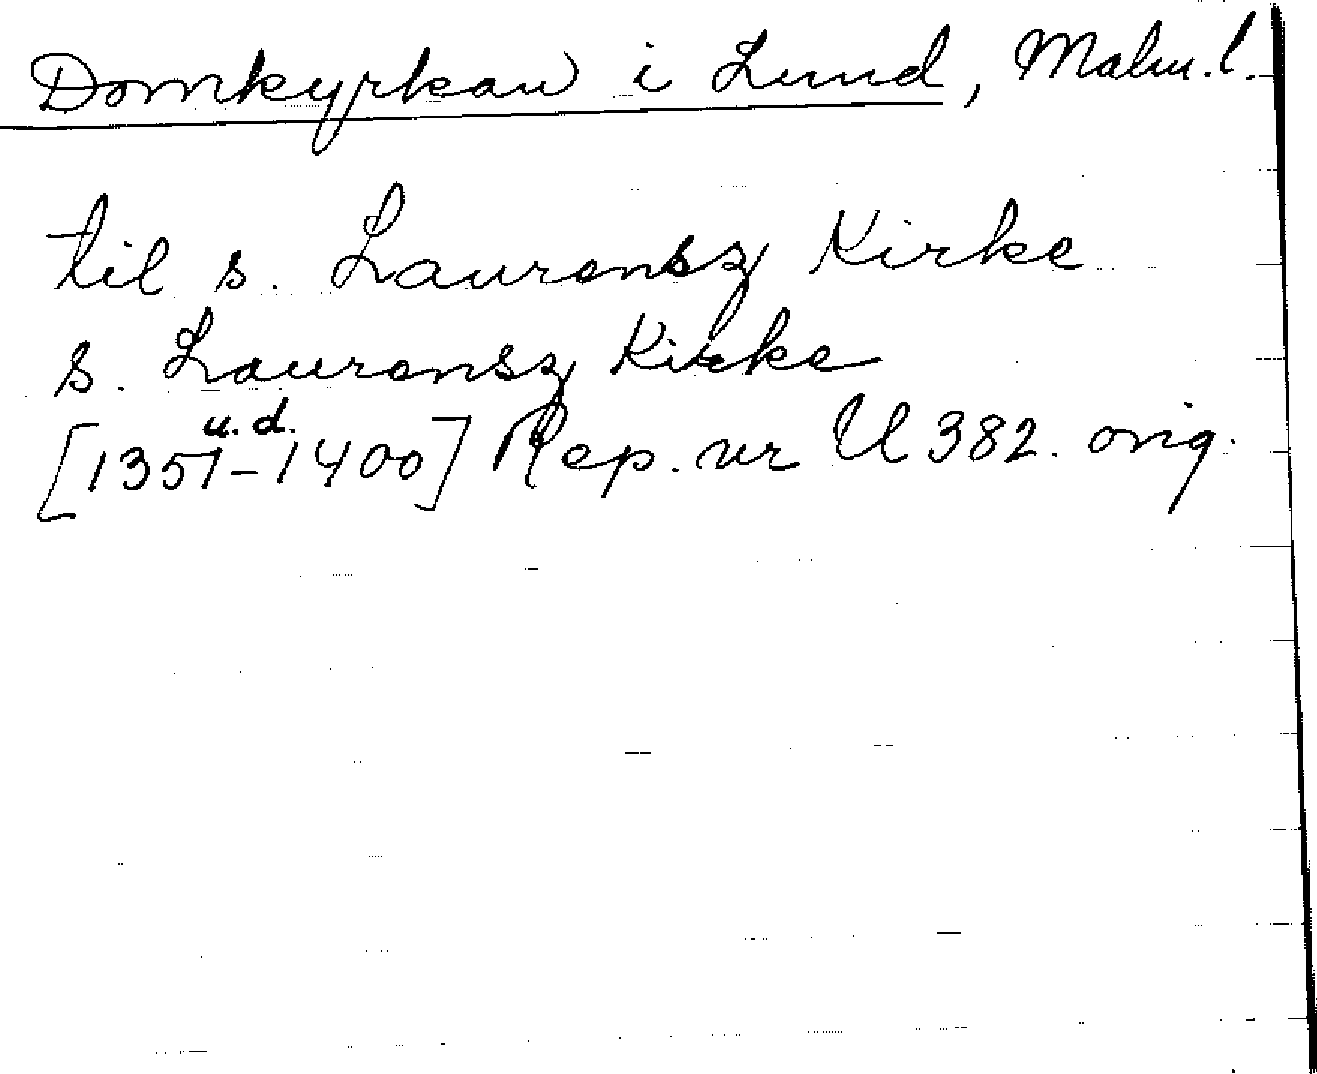 Domkyrkan i Lund, Malm.l.
til s. Laurensz Kirke
s. Laurensz Kirke
u. d.
[1351-1400] Rep. nr U 382. orig.